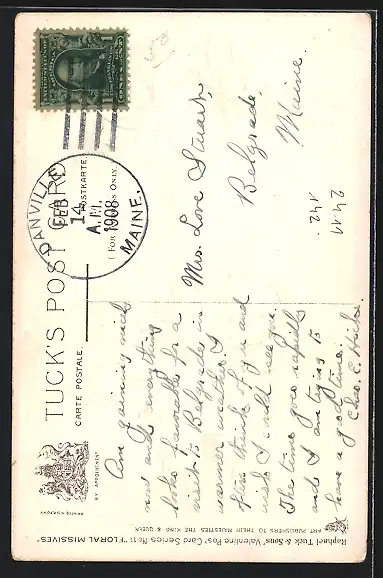 TUCK'S POST CARD
CARTE POSTALE
POSTKARTE
(FOR ADDRESS ONLY)
BY APPOINTMENT
DANVILLE
FEB
14
A.M.
1908
MAINE.
Mrs. Love Stuart,
Belgrade,
Maine.
Am gaining much
now and everything
looks favorable for a
visit to Belgrade in
warmer weather. I
often think of you and
wish I could see you.
The time goes rapidly
and I am trying to
have a good time.
Chas. E. Hicks.
Raphael Tuck & Sons' Valentine Post Card Series No. 11 "FLORAL MISSIVES"
ART PUBLISHERS TO THEIR MAJESTIES THE KING & QUEEN